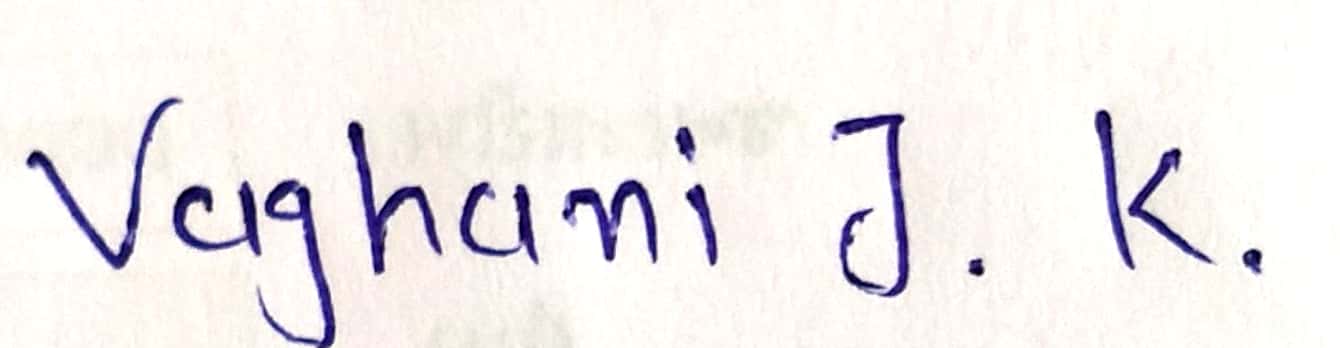 Vaghani J. K.